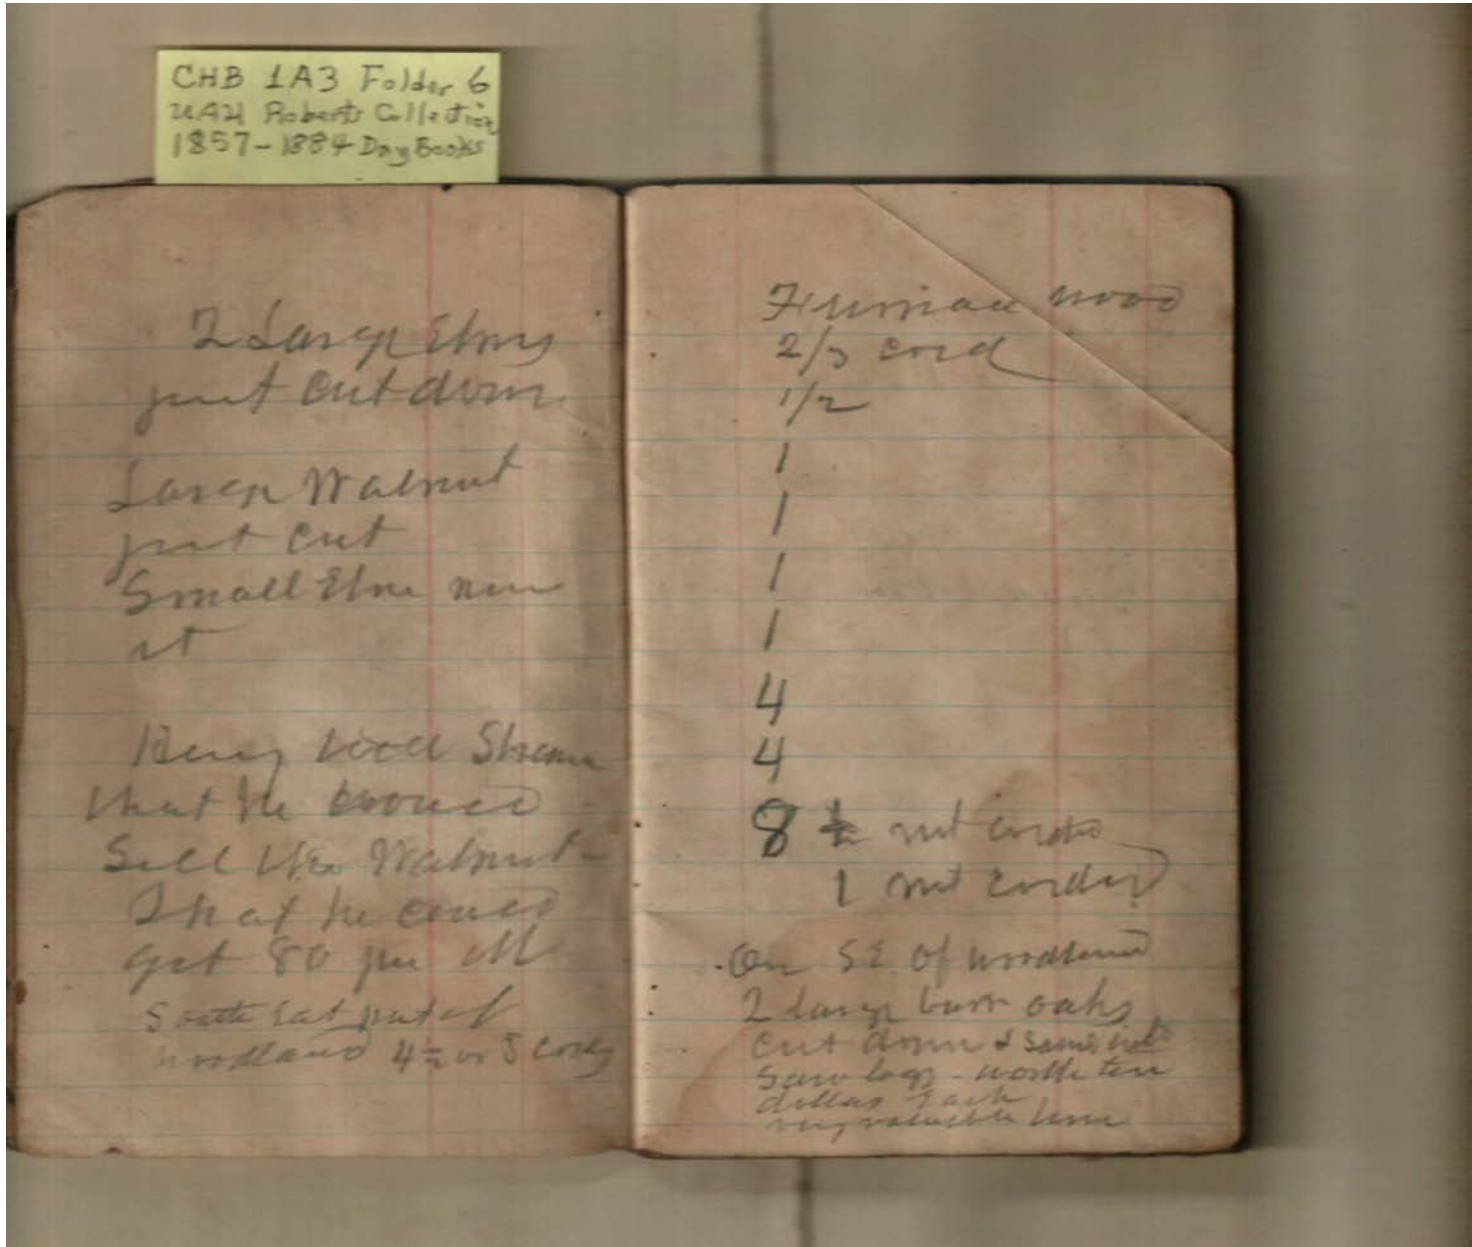 CHB 1A3 Folder 6
UAH Roberts Collection
1857-1884 Day Books
2 Large Elms
just cut down
Large Walnut
just cut
Small Elm near
it
told
that he would
Sell the Walnut-
That he could
get 80 per M
South East part of
woodland 4½ or 5 cords
wood
2/3 cord
1/2
1
1
1
1
4
4
8 ½ net cords
1 net
On SE of woodland
2 large burr oaks
cut down & sawed into
Saw logs - worth ten
dollars Each
very valuable